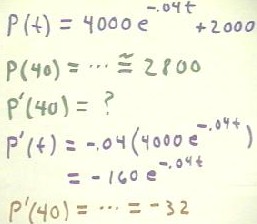 P(t) = 4000 e^-.04t + 2000
P(40) = ... ≅ 2800
P'(40) = ?
P'(t) = -.04(4000 e^-.04t)
= -160 e^-.04t
P'(40) = ... = -32